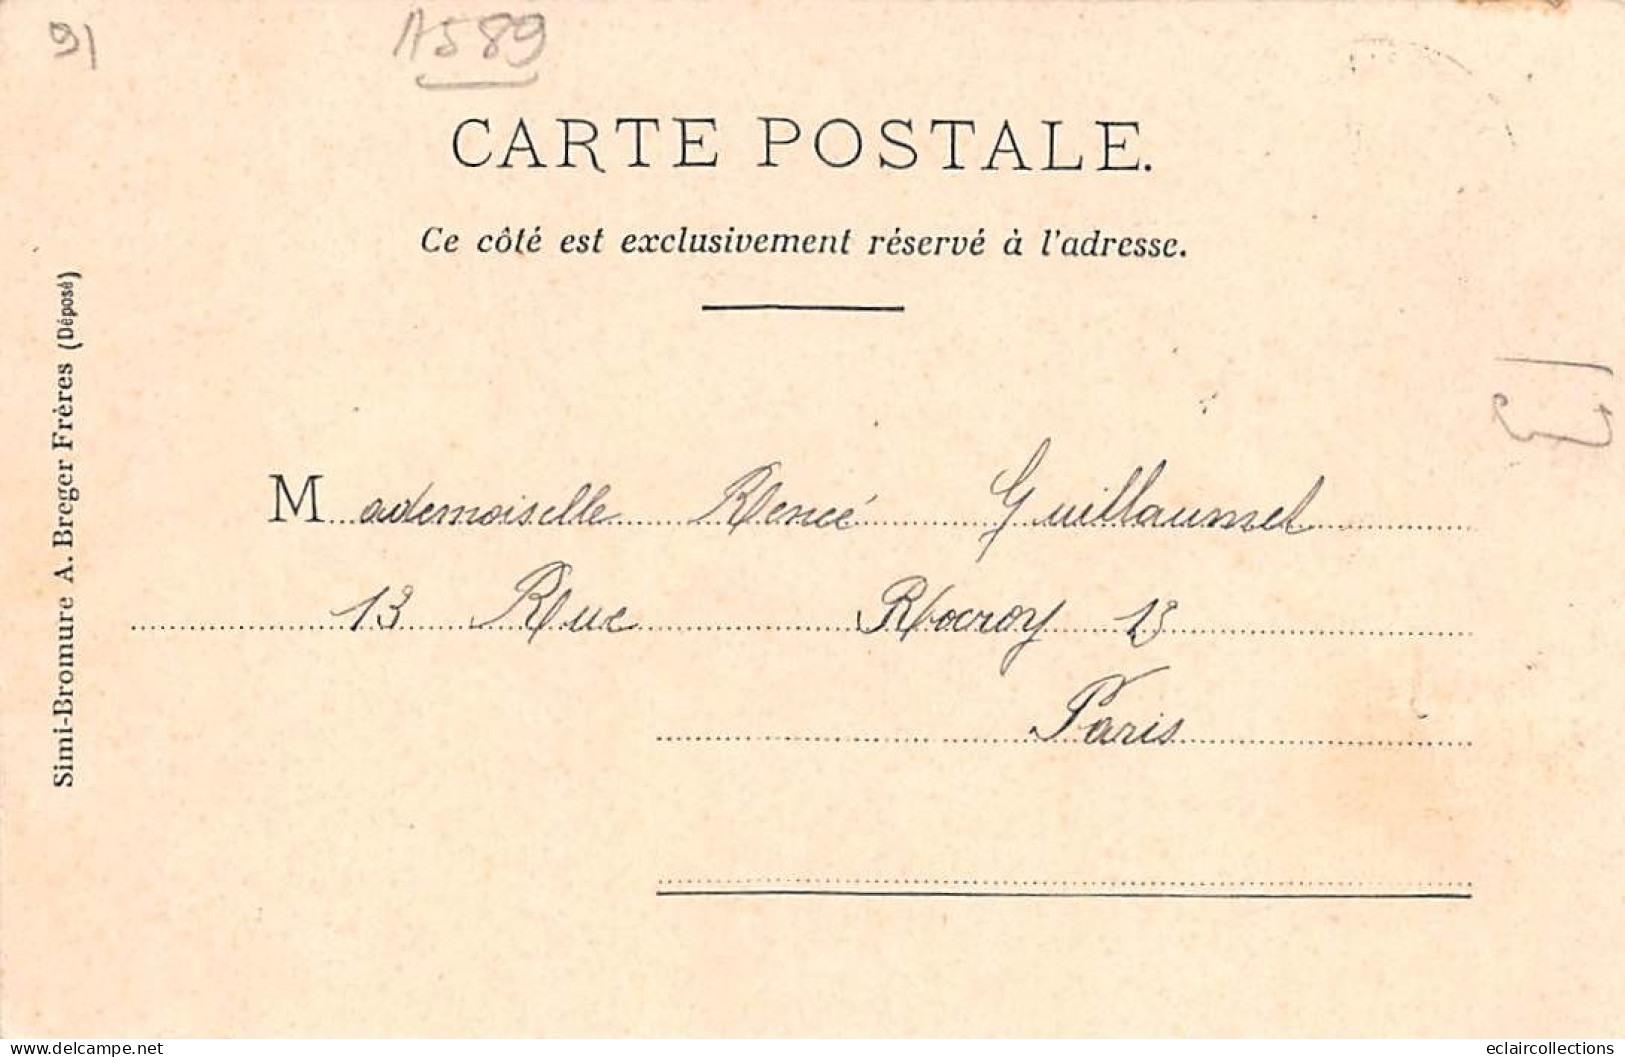 91
A589
CARTE POSTALE.
Ce côté est exclusivement réservé à l'adresse.
Simi-Bromure A. Breger Frères (Déposé)
Mademoiselle Renée Guillaumel
13 Rue Rocroy 13
Paris
www.delcampe.net
eclaircollections